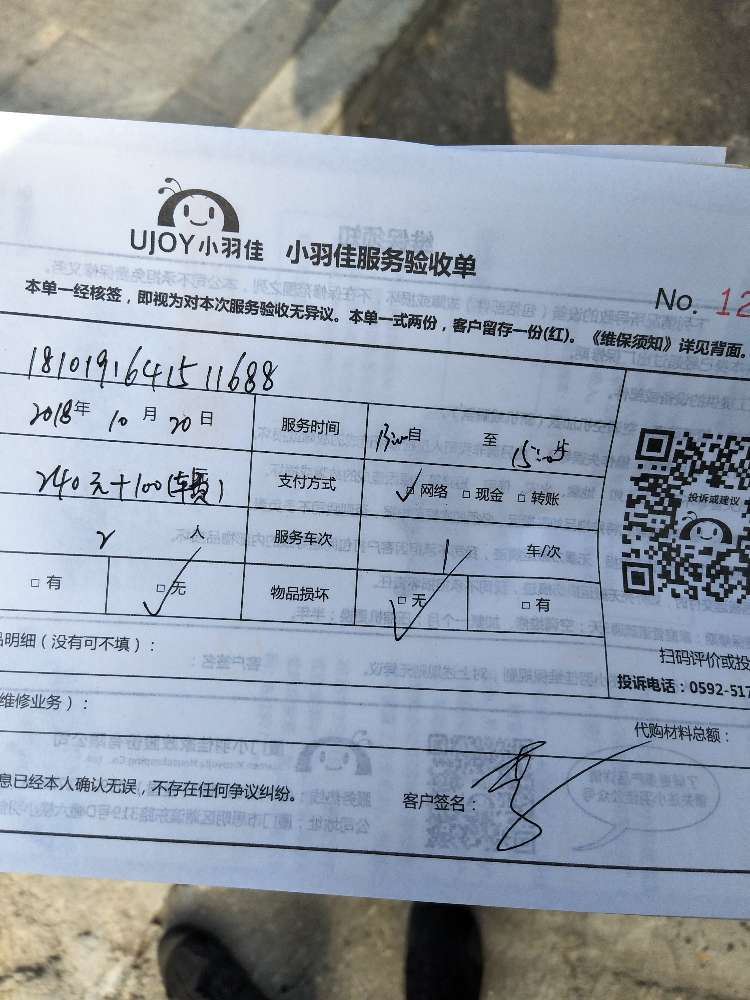 UJOY小羽佳 小羽佳服务验收单
No. 12
本单一经核签，即视为对本次服务验收无异议。本单一式两份，客户留存一份(红)。《维保须知》详见背面。
1810191641511688
2018年 10月 20日 服务时间 自 至
240元+100(车费) 支付方式 ☑网络 □现金 □转账
2 人 服务车次 1 车/次
□有 ☑无 物品损坏 ☑无 □有
投诉或建议
品明细（没有可不填）：
扫码评价或投
投诉电话：0592-517
维修业务）：
代购材料总额：
息已经本人确认无误，不存在任何争议纠纷。
客户签名：